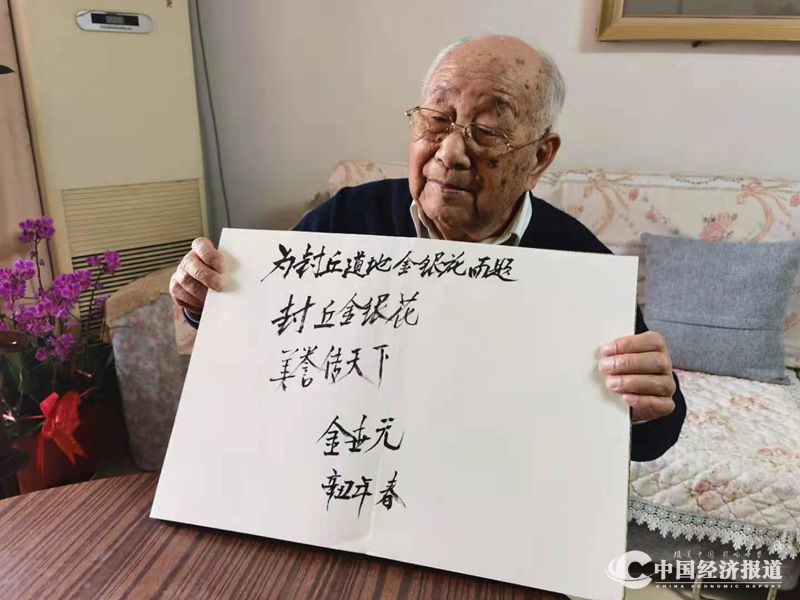 为封丘道地金银花而题
封丘金银花
美誉传天下
金世元
辛丑年春
中国经济报道
CHINA ECONOMIC REPORT